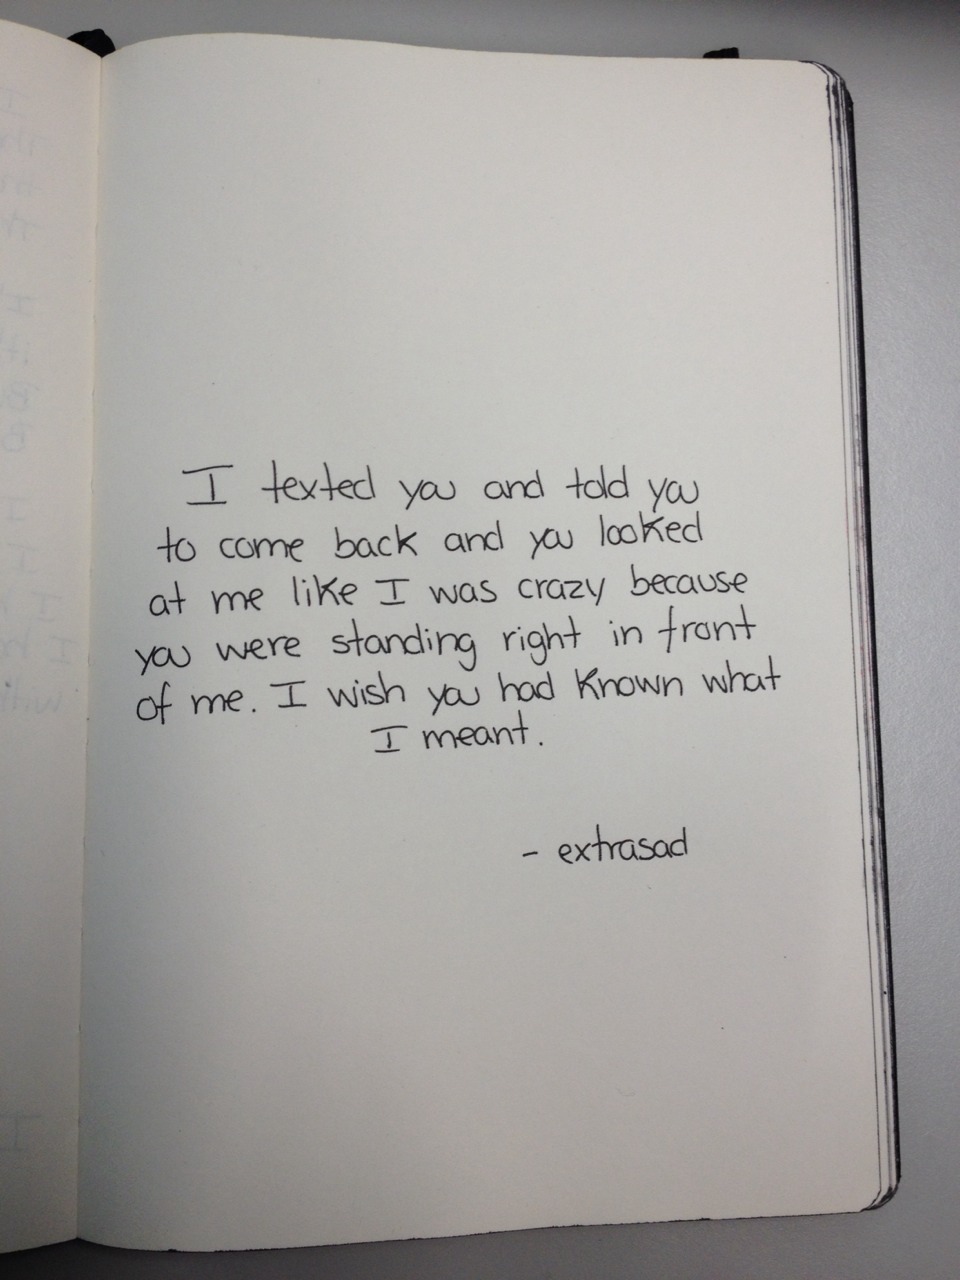 I texted you and told you
to come back and you looked
at me like I was crazy because
you were standing right in front
of me. I wish you had known what
I meant.
- extrasad